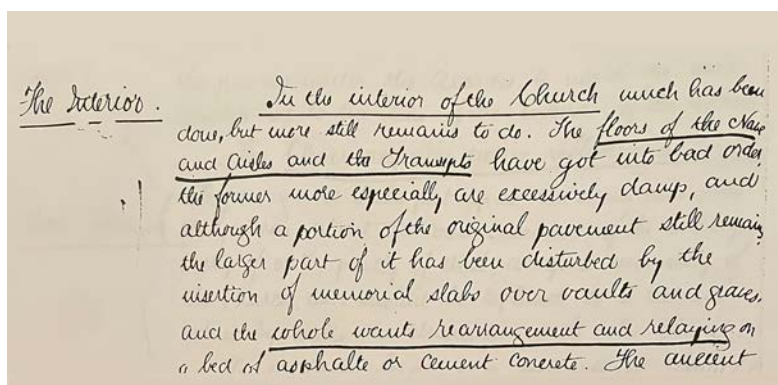 The Interior.
In the interior of the Church much has been
done, but more still remains to do. The floors of the Nave
and Aisles and the Transepts have got into bad order,
the former more especially are excessively damp, and
although a portion of the original pavement still remains,
the larger part of it has been disturbed by the
insertion of memorial slabs over vaults and graves,
and the whole wants rearrangement and relaying on
a bed of asphalte or cement concrete. The ancient